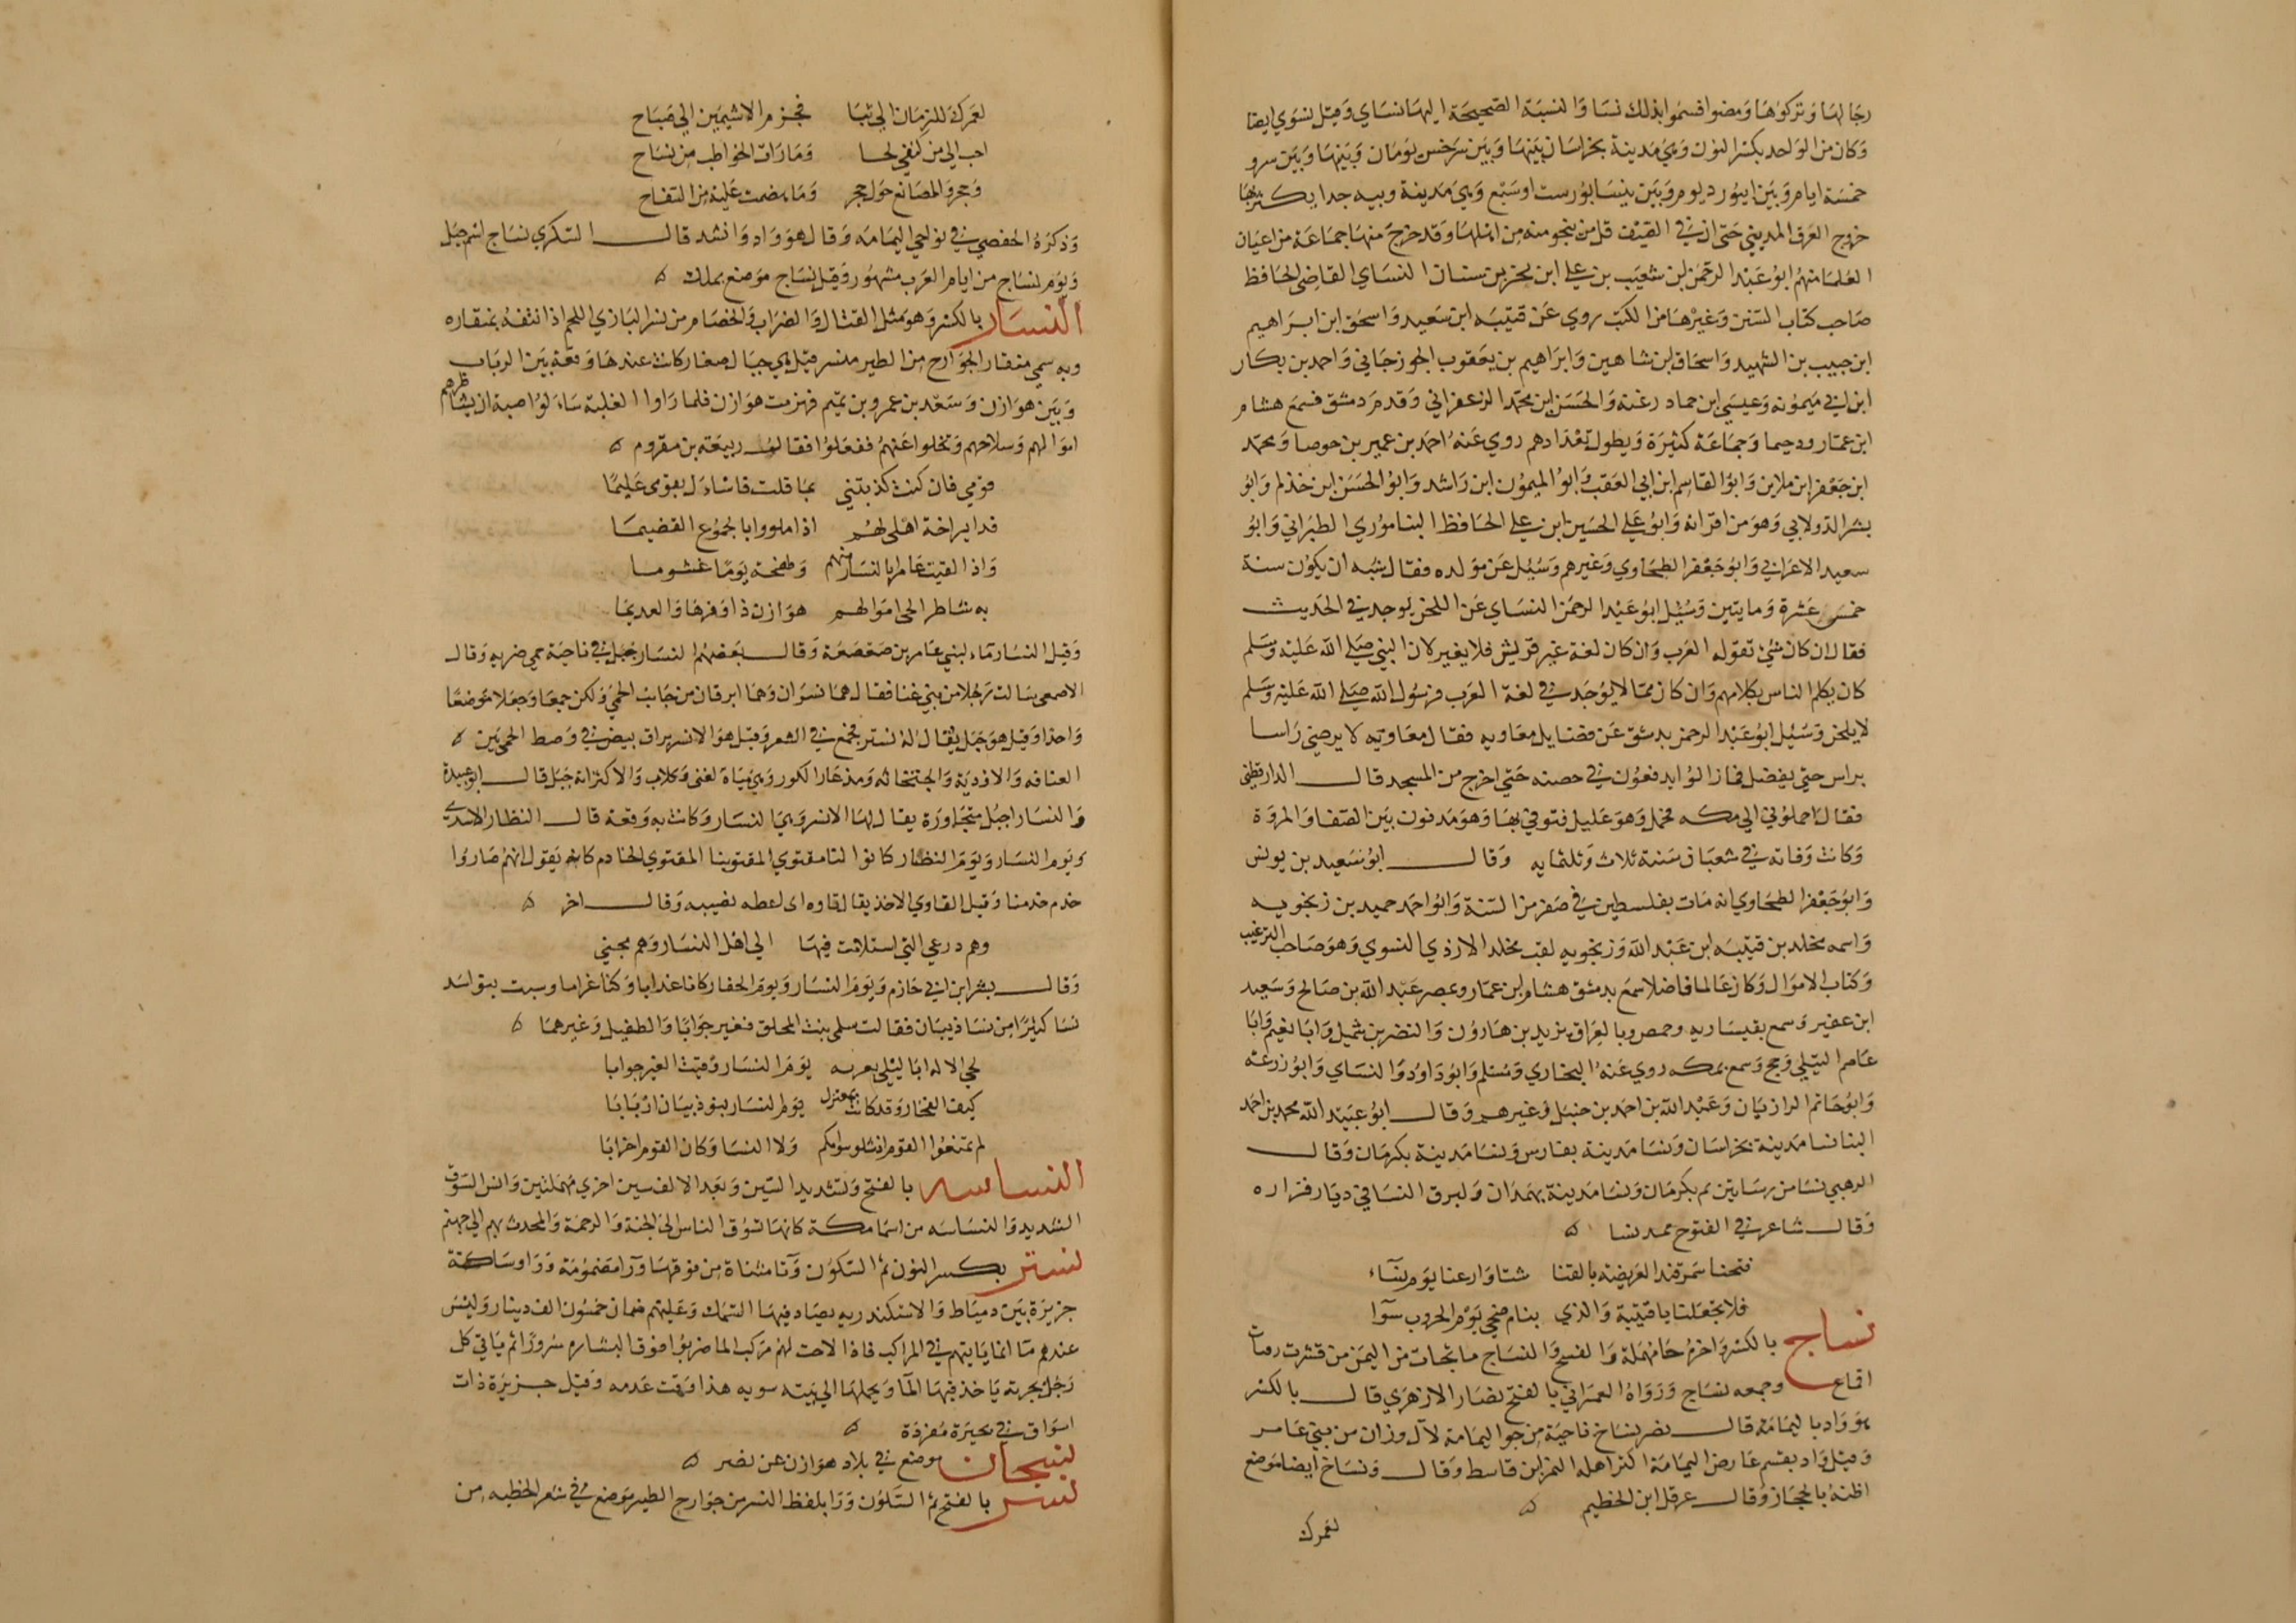 رجالها وتركوها ومضوا فسموا بذلك نسا والنسبة الصحيحة اليها نساي وقيل نسوي ايضا
وكان من الواحد بكسر النون وهي مدينة بخراسان بينها وبين سرخس يومان وبينها وبين مرو
خمسة ايام وبين ابيورد يوم وبين نيسابور ست او سبع وهي مدينة وبيه جدا يكثر بها
خروج العرق المديني حتى ان في الصيف قل من ينجو منه من اهلها وقد خرج منها جماعة من اعيان
العلما منهم ابو عبد الرحمن بن شعيب بن علي ابن بحر بن سنان النساي القاضي الحافظ
صاحب كتاب السنن وغيرها من الكتب روي عن قتيبه ابن سعيد واسحق ابن ابراهيم
ابن حبيب بن الشهيد واسحاق بن شاهين وابراهيم بن يعقوب الجوزجاني واحمد بن بكار
ابن ابي ميمونه وعيسي ابن حماد رغبة والحسن ابن محمد الزعفراني وقدم دمشق فسمع هشام
ابن عمار ودحيما وجماعة كثيرة ويطول تعدادهم روي عنه احمد بن عمير بن حوصا ومحمد
ابن جعفر ابن ملاس وابو القاسم ابن ابي العقب وابو الميمون ابن راشد وابو الحسن ابن خذلم وابو
بشر الدولابي وهو من اقرانه وابو علي الحسين ابن علي الحافظ النيسابوري الطبراني وابو
سعيد الاعرابي وابو جعفر الطحاوي وغيرهم وسئل عن مولده فقال يشبه ان يكون سنة
خمس عشرة ومايتين وسئل ابو عبد الرحمن النساي عن اللحن يوجد في الحديث
فقال ان كان شئ تقوله العرب وان كان لغة غير قريش فلا يغير لان النبي صلى الله عليه وسلم
كان يكلم الناس بكلامهم وان كان مما لا يوجد في لغة العرب فرسول الله صلى الله عليه وسلم
لا يلحن وسئل ابو عبد الرحمن بدمشق عن فضايل معاويه فقال معاويه لا يرضي راسا
براس حتى يفضل فما زالوا يدفعون في حضنه حتى اخرج من المسجد قال الدارقطني
فقال احملوني الى مكه فحمل وهو عليل فتوفي بها وهو مدفون بين الصفا والمروة
وكانت وفاته في شعبان سنة ثلاث وثلثمايه وقال ابو سعيد بن يونس
وابو جعفر الطحاوي انه مات بفلسطين في صفر من السنة وابو احمد حميد بن زنجويه
واسمه مخلد بن قتيبه ابن عبد الله وزنجويه لقب مخلد الازدي النسوي وهو صاحب الترغيب
وكتاب الاموال وكان عالما فاضلا سمع بدمشق هشام ابن عمار وبمصر عبد الله بن صالح وسعيد
ابن عفير وسمع بقيساريه وحمص وبالعراق يزيد بن هارون والنضر بن شميل وابا نعيم وابا
عاصم النبيلي وحج وسمع بمكه روي عنه البخاري ومسلم وابو داود والنساي وابو زرعة
وابو حاتم الرازيان وعبد الله بن احمد بن حنبل وغيرهم وقال ابو عبيد الله محمد بن احمد
البنا نسا مدينة بخراسان ونسا مدينة بفارس ونسا مدينة بكرمان وقال
الرهبي نسا من رساتيق بم بكرمان ونسا مدينة بهمدان ولبرق النسا في ديار فزاره
وقال شاعر في الفتوح يمد نسا
فتحنا سمرقند العريضة بالقنا شتا وارعنا يوم نساء
فلا تجعلنا يا قتيبة والذي ينام ضحي يوم الحروب سوآ
نساح بالكسر واخره حا مهملة والفسح والنساح ما تحات من التمر من قشرت وفتات
اقماع وجمعه نساح ورواه العمراني بالفتح نضار الازهري قال بالكسر
هو واد باليمامة قال نصر نساح ناحية من جو اليمامة لآل وزان من بني عامر
وقيل واد يقسم عارض اليمامة اكثر اهله النمر ابن قاسط وقال ونساح ايضا موضع
اظنه بالحجاز وقال عرقل ابن الخطيم
لعمرك
لعمرك للزمان الى ثبا فحزم الاشيمين الى صباح
احب الى من كنفي لحا وما رات الخواطب من نساح
وحجر والمصانع حول حجر وما هضمت عليه من التفاح
وذكره الحفصي في نواحي اليمامه وقال هو واد وانشد قال السكري نساح اسم جبل
ويوم نساح من ايام العرب مشهور وقيل نساح موضع بملك
النسار بالكسر وهو مثل القتال والضراب والخصام من نسر البازي اللحم اذا نتفه بمنقاره
وبه سمي منقار الجوارح من الطير منسر قيل هي جبال صغار كانت عندها وقعة بين الرباب
وبين هوازن وسعد بن عمرو بن تميم فهزمت هوازن فلما راوا الغلبة سالوا ضبة ان يشاطرهم
اموالهم وسلاحهم وتخلوا عنهم ففعلوا فقال ربيعة بن مقروم
قومي فان كنت كذبتني بما قلت فاسال بقومي عليما
فدا ببزاخة اهلي لهم اذا ملووا بالجموع القضيما
واذا لقيت عامرا بالنسار منهم وطخفة يوما غشوما
به شاطر الحي اموالهم هوازن ذا وفرها والعديما
وقيل النسار ماء لبني عامر بن صعصعة وقال بعضهم النسار جبل في ناحية حمى ضريه وقال
الاصمعي سالت رجلا من بني غنا فقال هما نسران وهما ابرقان من جانب الحمى ولكن جمعا وجعلا موضعا
واحدا وقيل هو جبل يقال له نسر فجمع في الشعر وقيل هو الانسر براق بيض في وضط الحمى بين
العنافه والاودية والجثجاثه ومذعا والكور وهي مياة لغنى وكلاب والاكثر انه جبل قال ابو عبيدة
والنسار اجبل متجاورة يقال لها الانسر وهي النسار وكانت به وقعة قال النظار الاسدي
ويوم النسار ويوم النظار كانوا لنا مقتوي المقتوينا المقتوي الخادم كانه يقول انهم صاروا
خدم خدمنا وقيل القاوي الاخذ يقال قاوه اي اعطه نصيبه وقال اخر
وهم درعي التي استلامت فيها الى اهل النسار وهم مجني
وقال بشر ابن ابي خازم ويوم النسار ويوم الجفار كانا عذابا وكانا غراما وسبت بنو اسد
نسا كثيرا من نسا ذبيان فقالت سلمى بنت المحلق تعير جوابا والطفيل وغيرهما
لحى الاله ابا ليلى بفره يوم النسار وقنب العير جوابا
كيف الفخار وقد كانت بمعترك يوم النسار بنو ذبيان اربابا
لم تمنعوا القوم اذ شلوا سوامكم ولا النسا وكان القوم احزابا
النساسه بالفتح وتشديد السين وبعد الالف سين اخري مهملتين والنس السوق
الشديد والنساسه من اسما مكة كانها تسوق الناس الى الجنة والرحمة والمحدث بهم الى جهنم
نسترو بكسر النون ثم السكون وتا مثناة من فوقها ورا مضمومة وواو ساكنة
جزيرة بين دمياط والاسكندريه يصاد فيها السمك وعليهم ضمان خمسون الف دينار وليس
عندهم ما انما ياتيهم في المراكب فاذا لاحت لهم مركب الما ضربوا بوق البشاره سرورا ثم ياتي كل
رجل بجرته ياخذ فيها الما ويحملها الى بيته سويه هذا وقت عدمه وقيل جزيرة ذات
اسواق في بحيرة مفردة
نسجان موضع في بلاد هوازن عن نصر
نسر بالفتح ثم السكون ورا بلفظ النسر من جوارح الطير موضع في شعر الحطيه من